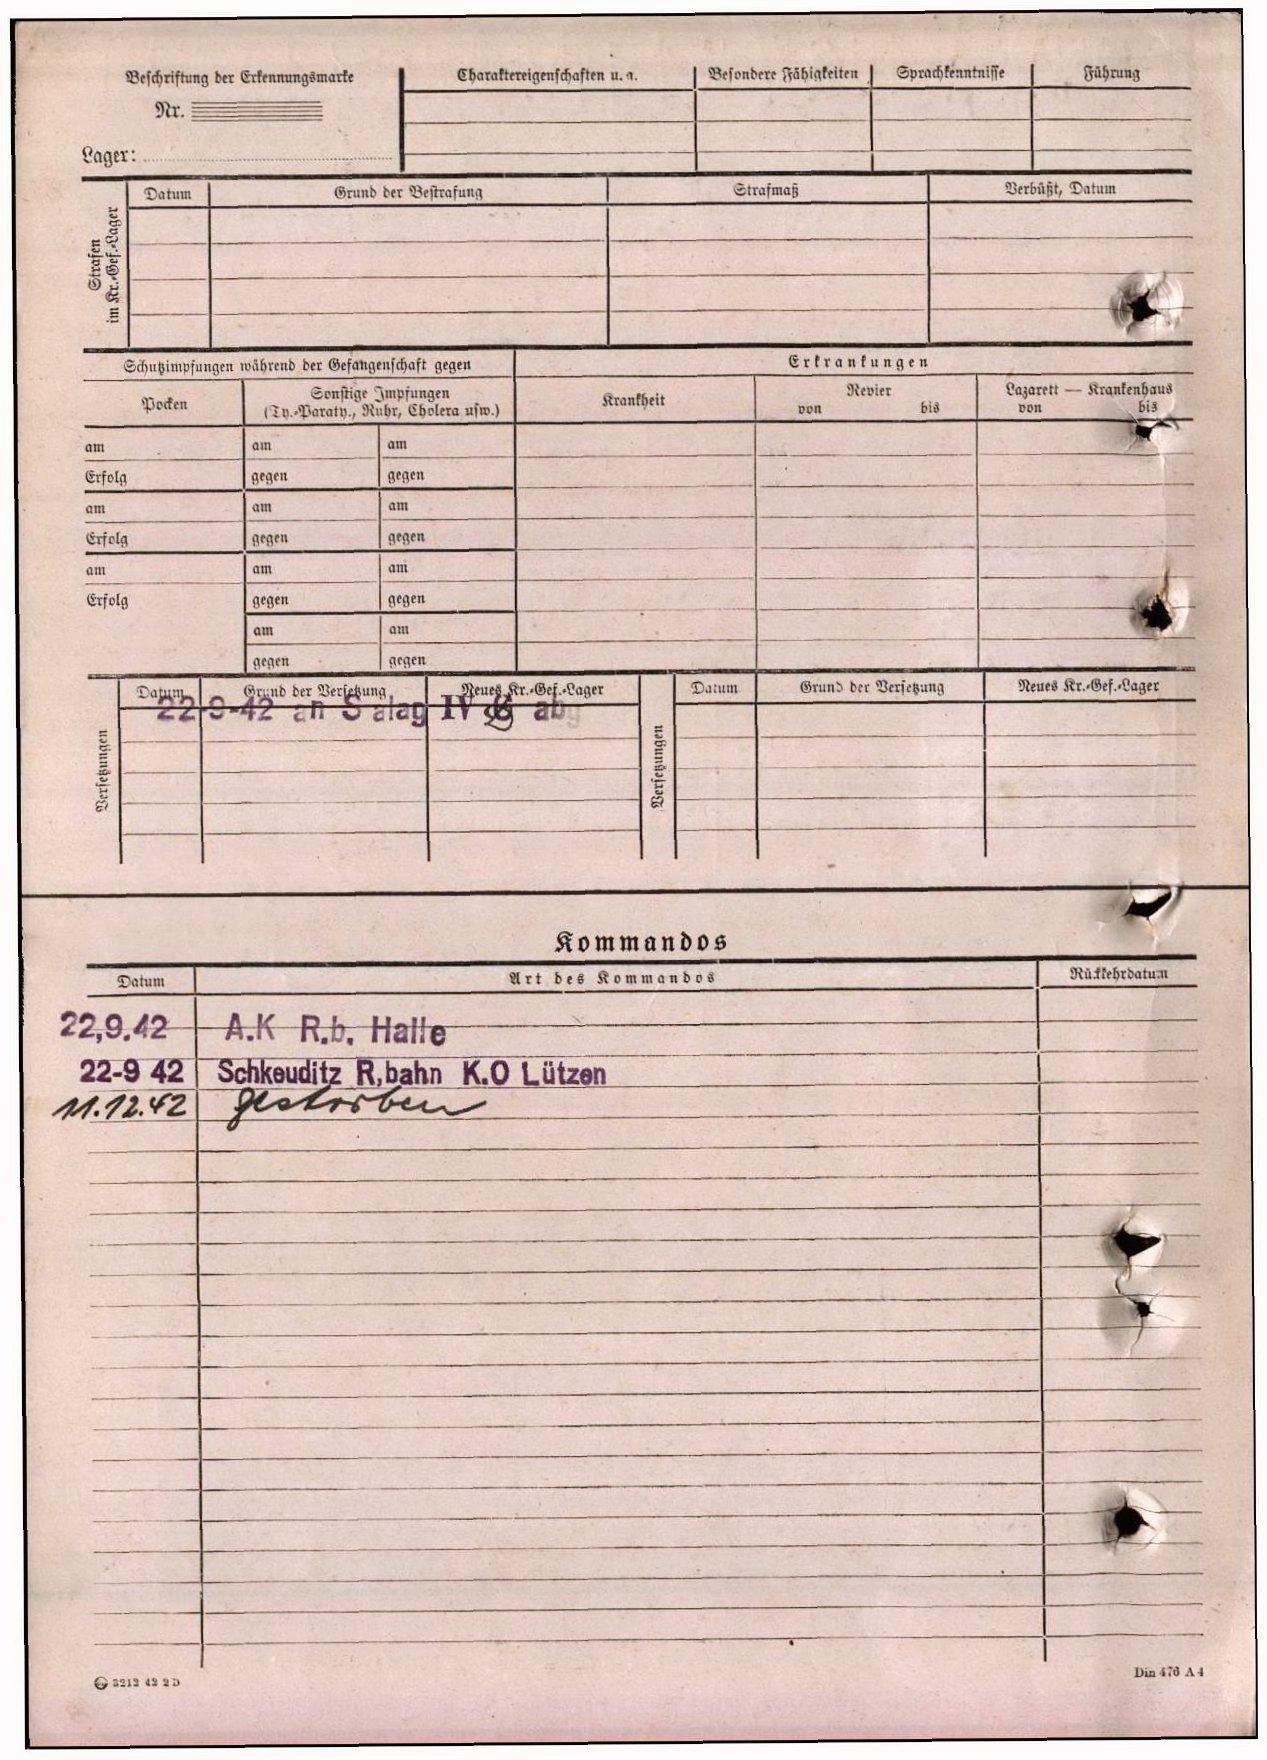 Beschriftung der Erkennungsmarke
Nr.
Lager:
Charaktereigenschaften u. a.
Besondere Fähigkeiten
Sprachkenntnisse
Führung
Strafen im Kr.-Gef.-Lager
Datum
Grund der Bestrafung
Strafmaß
Verbüßt, Datum
Schutzimpfungen während der Gefangenschaft gegen
Erkrankungen
Pocken
Sonstige Impfungen
(Ty.-Paraty., Ruhr, Cholera usw.)
Krankheit
Revier
von bis
Lazarett — Krankenhaus
von bis
am am am
Erfolg gegen gegen
am am am
Erfolg gegen gegen
am am am
Erfolg gegen gegen
am am
gegen gegen
Versetzungen
Datum Grund der Versetzung Neues Kr.-Gef.-Lager
22-9-42 an S alag IV abg
Versetzungen
Datum Grund der Versetzung Neues Kr.-Gef.-Lager
Kommandos
Datum Art des Kommandos Rückkehrdatum
22,9.42 A.K R.b. Halle
22-9 42 Schkeuditz R,bahn K.O Lützen
11.12.42 gestorben
3212 42 2 D
Din 476 A 4